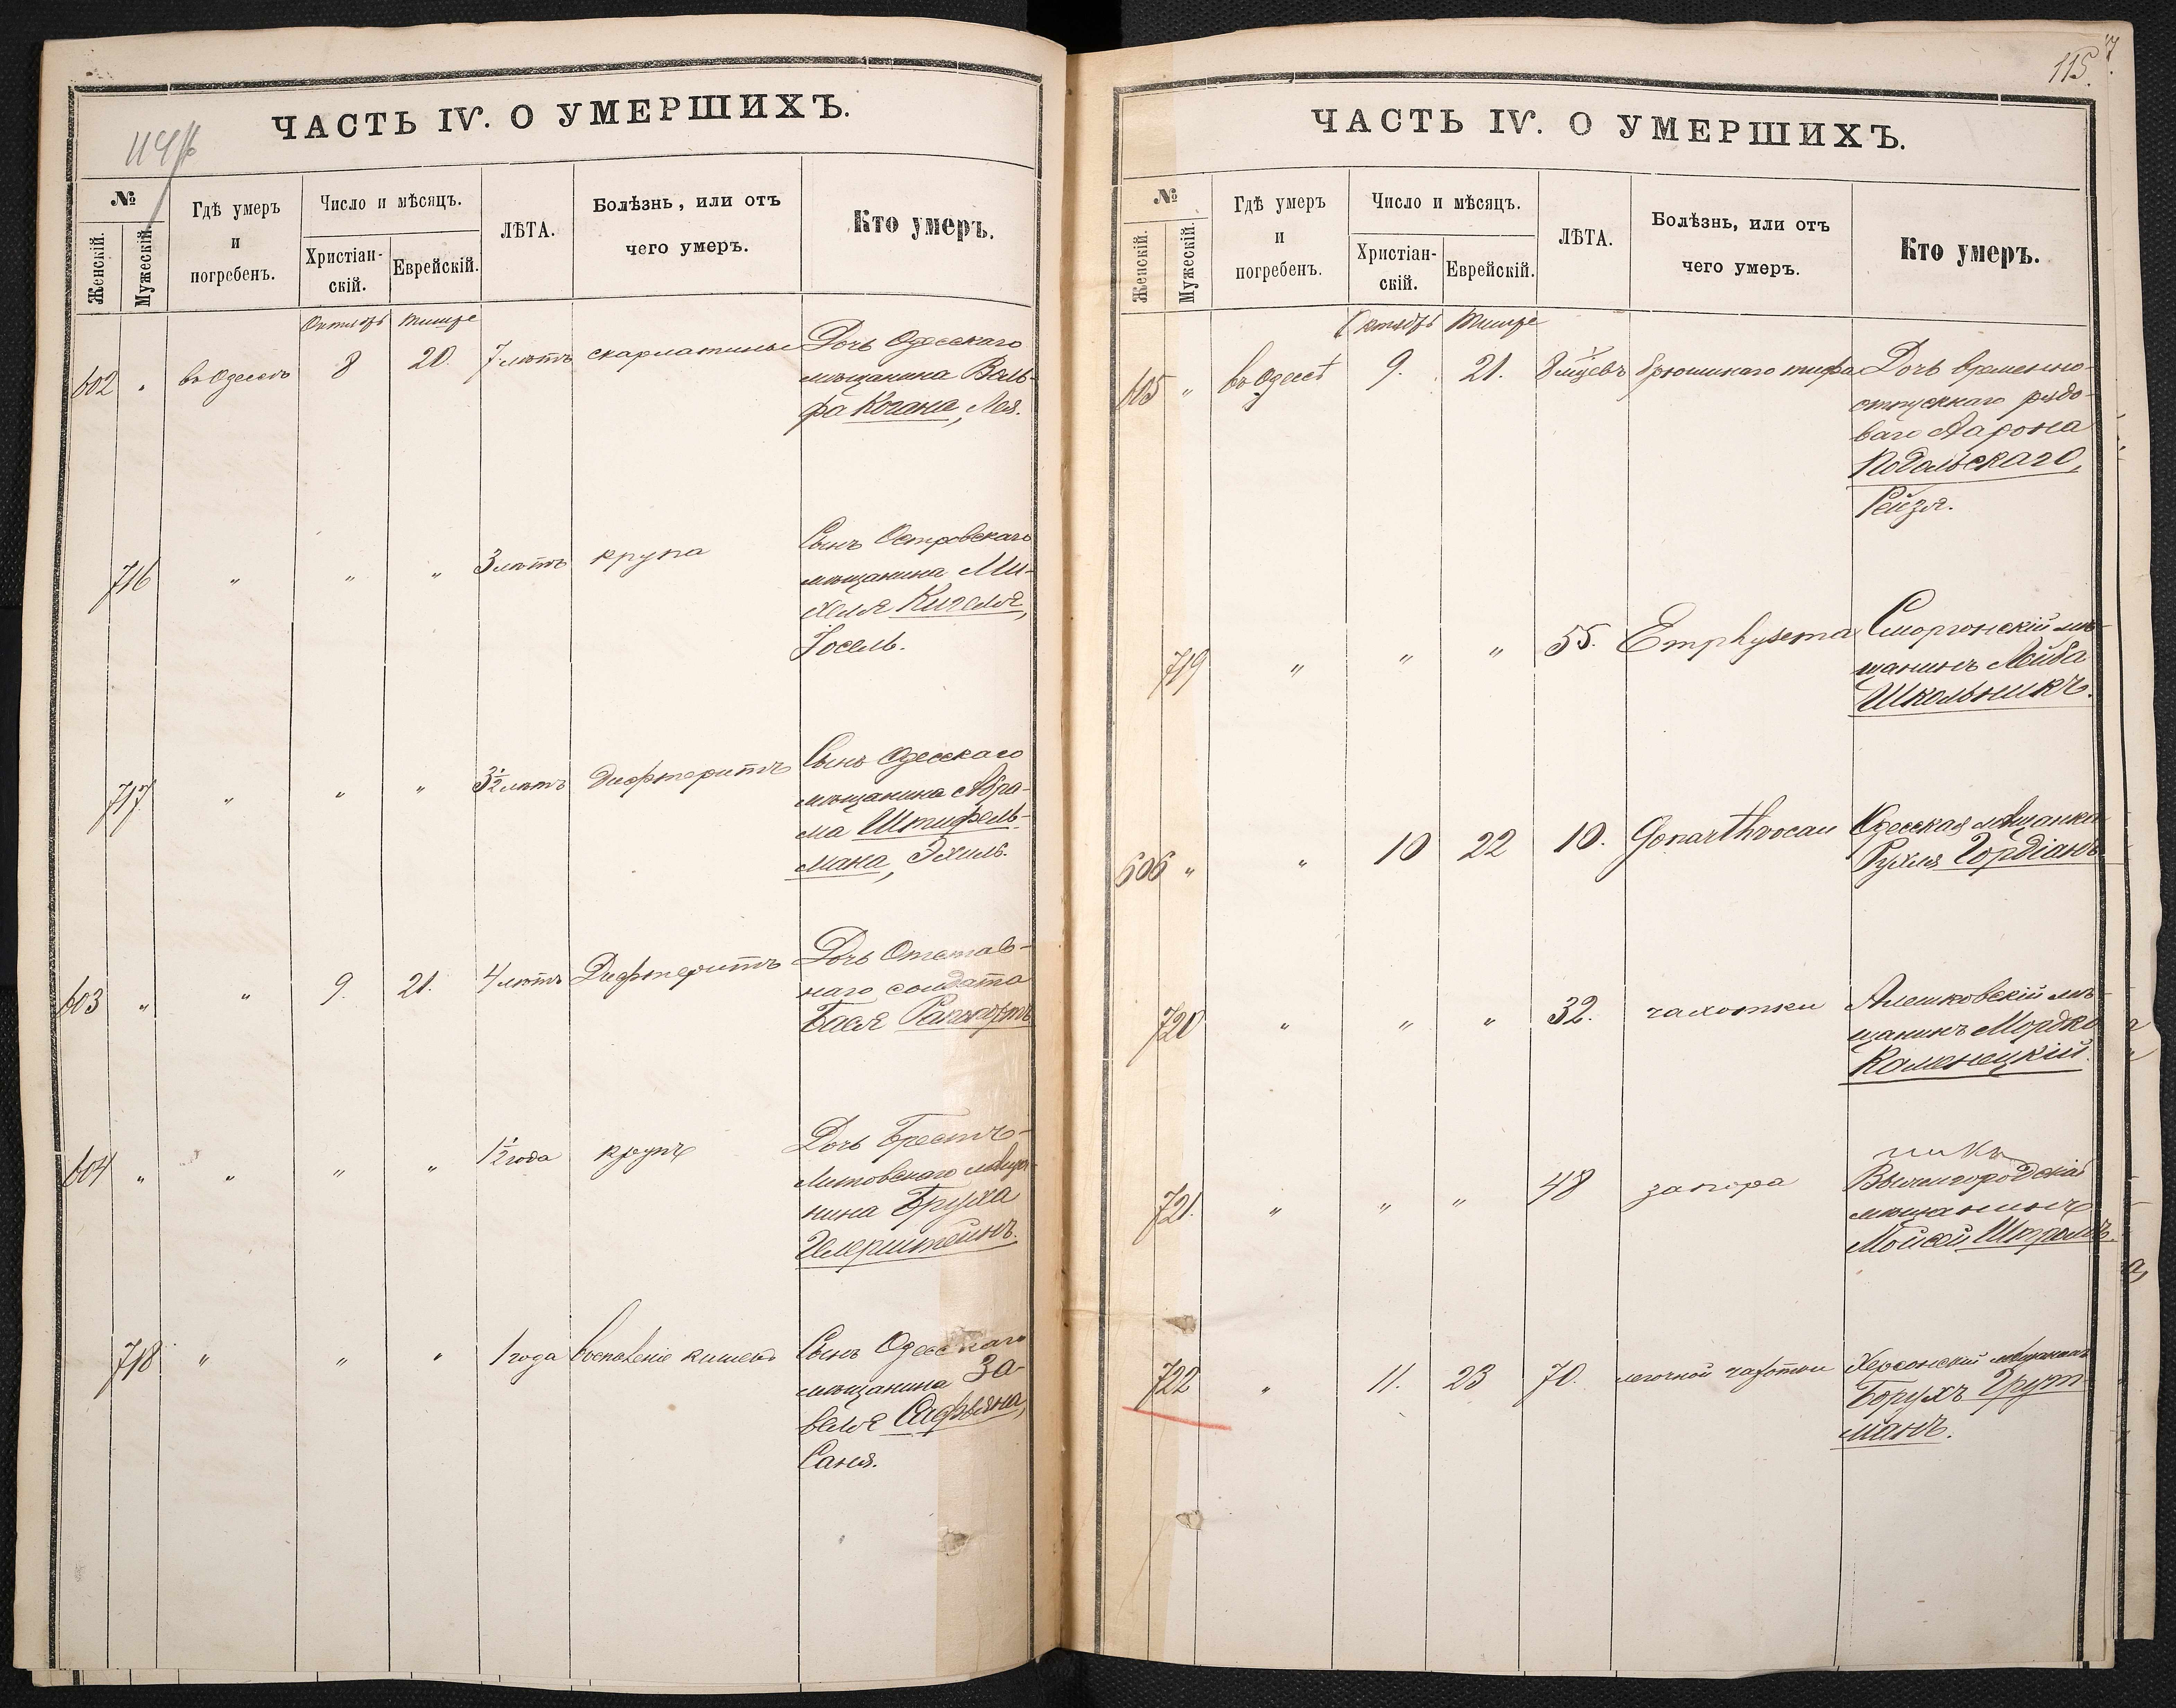 ЧАСТЬ IV. О УМЕРШИХЪ.
№
Женскій.
Мужескій.
Гдѣ умеръ
и
погребенъ.
Число и мѣсяцъ.
Христіан-
скій.
Еврейскій.
ЛѢТА.
Болѣзнь, или отъ
чего умеръ.
Кто умеръ.
Октябрь Тишре
602 " въ Одессѣ 8 20. 7 лѣтъ скарлатины Дочь Одесскаго
мѣщанина Воль-
фа Когана, Лея.
716 " " " 3 лѣтъ крупа Сынъ Островскаго
мѣщанина Ми-
хеля Кигеля,
Іосель.
717 " " " 3 1/2 лѣтъ Дифтеритъ Сынъ Одесскаго
мѣщанина Абра-
ма Штифель-
мана, Эхиль.
603 " " 9. 21. 4 лѣтъ Дифтеритъ Дочь Отстав-
наго солдата
Бася Рапопортъ
604 " " " " 1 1/2 года крупъ Дочь Брестъ-
Литовскаго мѣща-
нина Бруха
718 " " " 1 года воспаленіе кишекъ Сынъ Одесскаго
мѣщанина За-
веля Сафьяна,
Саня.
115.
ЧАСТЬ IV. О УМЕРШИХЪ.
№
Женскій.
Мужескій.
Гдѣ умеръ
и
погребенъ.
Число и мѣсяцъ.
Христіан-
скій.
Еврейскій.
ЛѢТА.
Болѣзнь, или отъ
чего умеръ.
Кто умеръ.
Октябрь Тишре
605 " въ Одессѣ 9. 21. 8 мѣсяцевъ брюшнаго тифа Дочь временно-
отпускнаго рядо-
ваго Аарона
Подольскаго,
Рейзя.
719 " " " 55. Emphysema Сморгонскій мѣ-
щанинъ Лейба
Школьникъ.
606 " " 10 22 10. Одесская мѣщанка
Рухля Гордіанъ
720 " " " 32. чахотки Алешковскій мѣ-
щанинъ Мордко
Каменецкій.
721. " " " 48 запора
мѣщанинъ
Мойсей
722 " 11. 23 70. легочной чахотки Херсонскій мѣщанинъ
Борухъ Грут-
манъ.